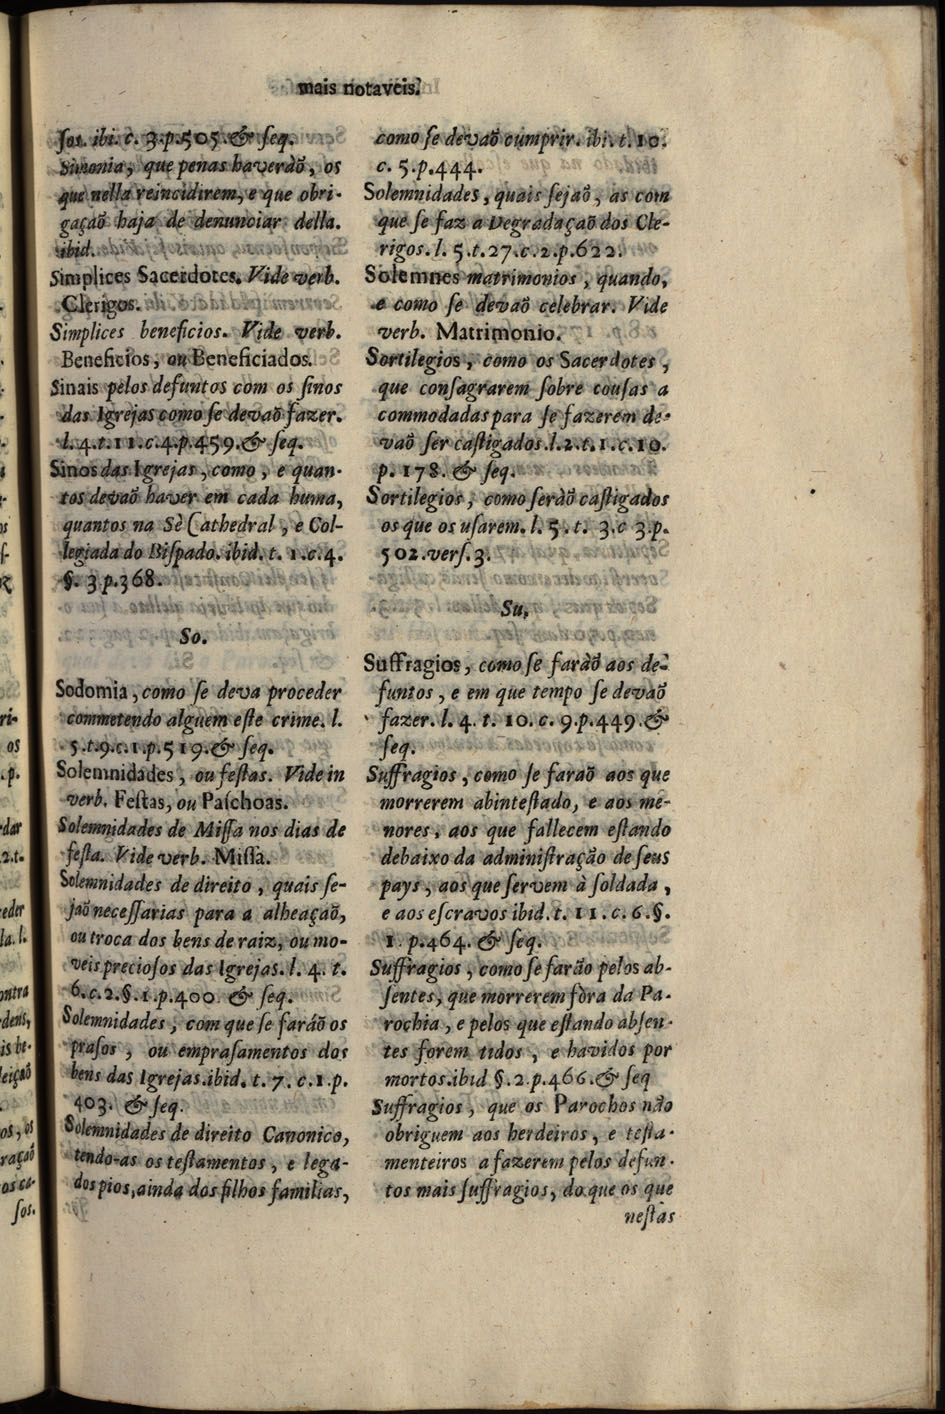 mais notaveis.
ſos. ibi. c. 3.p.505.& ſeq.
Simonia, que penas haveràõ, os
que nella reincidirem, e que obri-
gaçaõ haja de denunciar della.
ibid.
Simplices Sacerdotes. Vide verb.
Clerigos.
Simplices beneficios. Vide verb.
Beneficios, ou Beneficiados.
Sinais pelos defuntos com os ſinos
das Igrejas como ſe devaõ fazer.
l.4.t.11.c.4.p.459.& ſeq.
Sinos das Igrejas, como, e quan-
tos devaõ haver em cada huma,
quantos na Sè Cathedral, e Col-
legiada do Biſpado. ibid. t. 1.c.4.
§. 3.p.368.
So.
Sodomia, como ſe deva proceder
commetendo alguem eſte crime. l.
5.t.9.c.1.p.519.& ſeq.
Solemnidades, ou feſtas. Vide in
verb. Feſtas, ou Paſchoas.
Solemnidades de Miſſa nos dias de
feſta. Vide verb. Miſſa.
Solemnidades de direito, quais ſe-
jaõ neceſſarias para a alheaçaõ,
ou troca dos bens de raiz, ou mo-
veis precioſos das Igrejas. l. 4. t.
6.c.2.§.1.p.400. & ſeq.
Solemnidades, com que ſe faráõ os
praſos, ou empraſamentos dos
bens das Igrejas.ibid. t. 7. c.1.p.
403. & ſeq.
Solemnidades de direito Canonico,
tendo-as os teſtamentos, e lega-
dos pios, ainda dos filhos familias,
como ſe devaõ cumprir. ibi. t.10.
c. 5.p.444.
Solemnidades, quais ſejaõ, as com
que ſe faz a Degradaçaõ dos Cle-
rigos. l. 5.t.27.c.2.p.622.
Solemnes matrimonios, quando,
e como ſe devaõ celebrar. Vide
verb. Matrimonio.
Sortilegios, como os Sacerdotes,
que conſagrarem ſobre couſas a
commodadas para ſe fazerem de-
vaõ ſer caſtigados.l.2.t.1.c.10.
p. 178. & ſeq.
Sortilegios, como ſeràõ caſtigados
os que os uſarem. l. 5. t. 3.c 3.p.
502.verſ.3.
Su.
Suffragios, como ſe faràõ aos de-
funtos, e em que tempo ſe devaõ
fazer. l. 4. t. 10. c. 9.p.449.&
ſeq.
Suffragios, como ſe faraõ aos que
morrerem abinteſtado, e aos me-
nores, aos que fallecem eſtando
debaixo da adminiſtração de ſeus
pays, aos que ſervem à ſoldada,
e aos eſcravos ibid. t. 11. c. 6.§.
1. p.464. & ſeq.
Suffragios, como ſe farão pelos ab-
ſentes, que morrerem fòra da Pa-
rochia, e pelos que eſtando abſen-
tes forem tidos, e havidos por
mortos.ibid §.2.p.466.& ſeq
Suffragios, que os Parochos não
obriguem aos herdeiros, e teſta-
menteiros a fazerem pelos defun-
tos mais ſuffragios, do que os que
neſtas